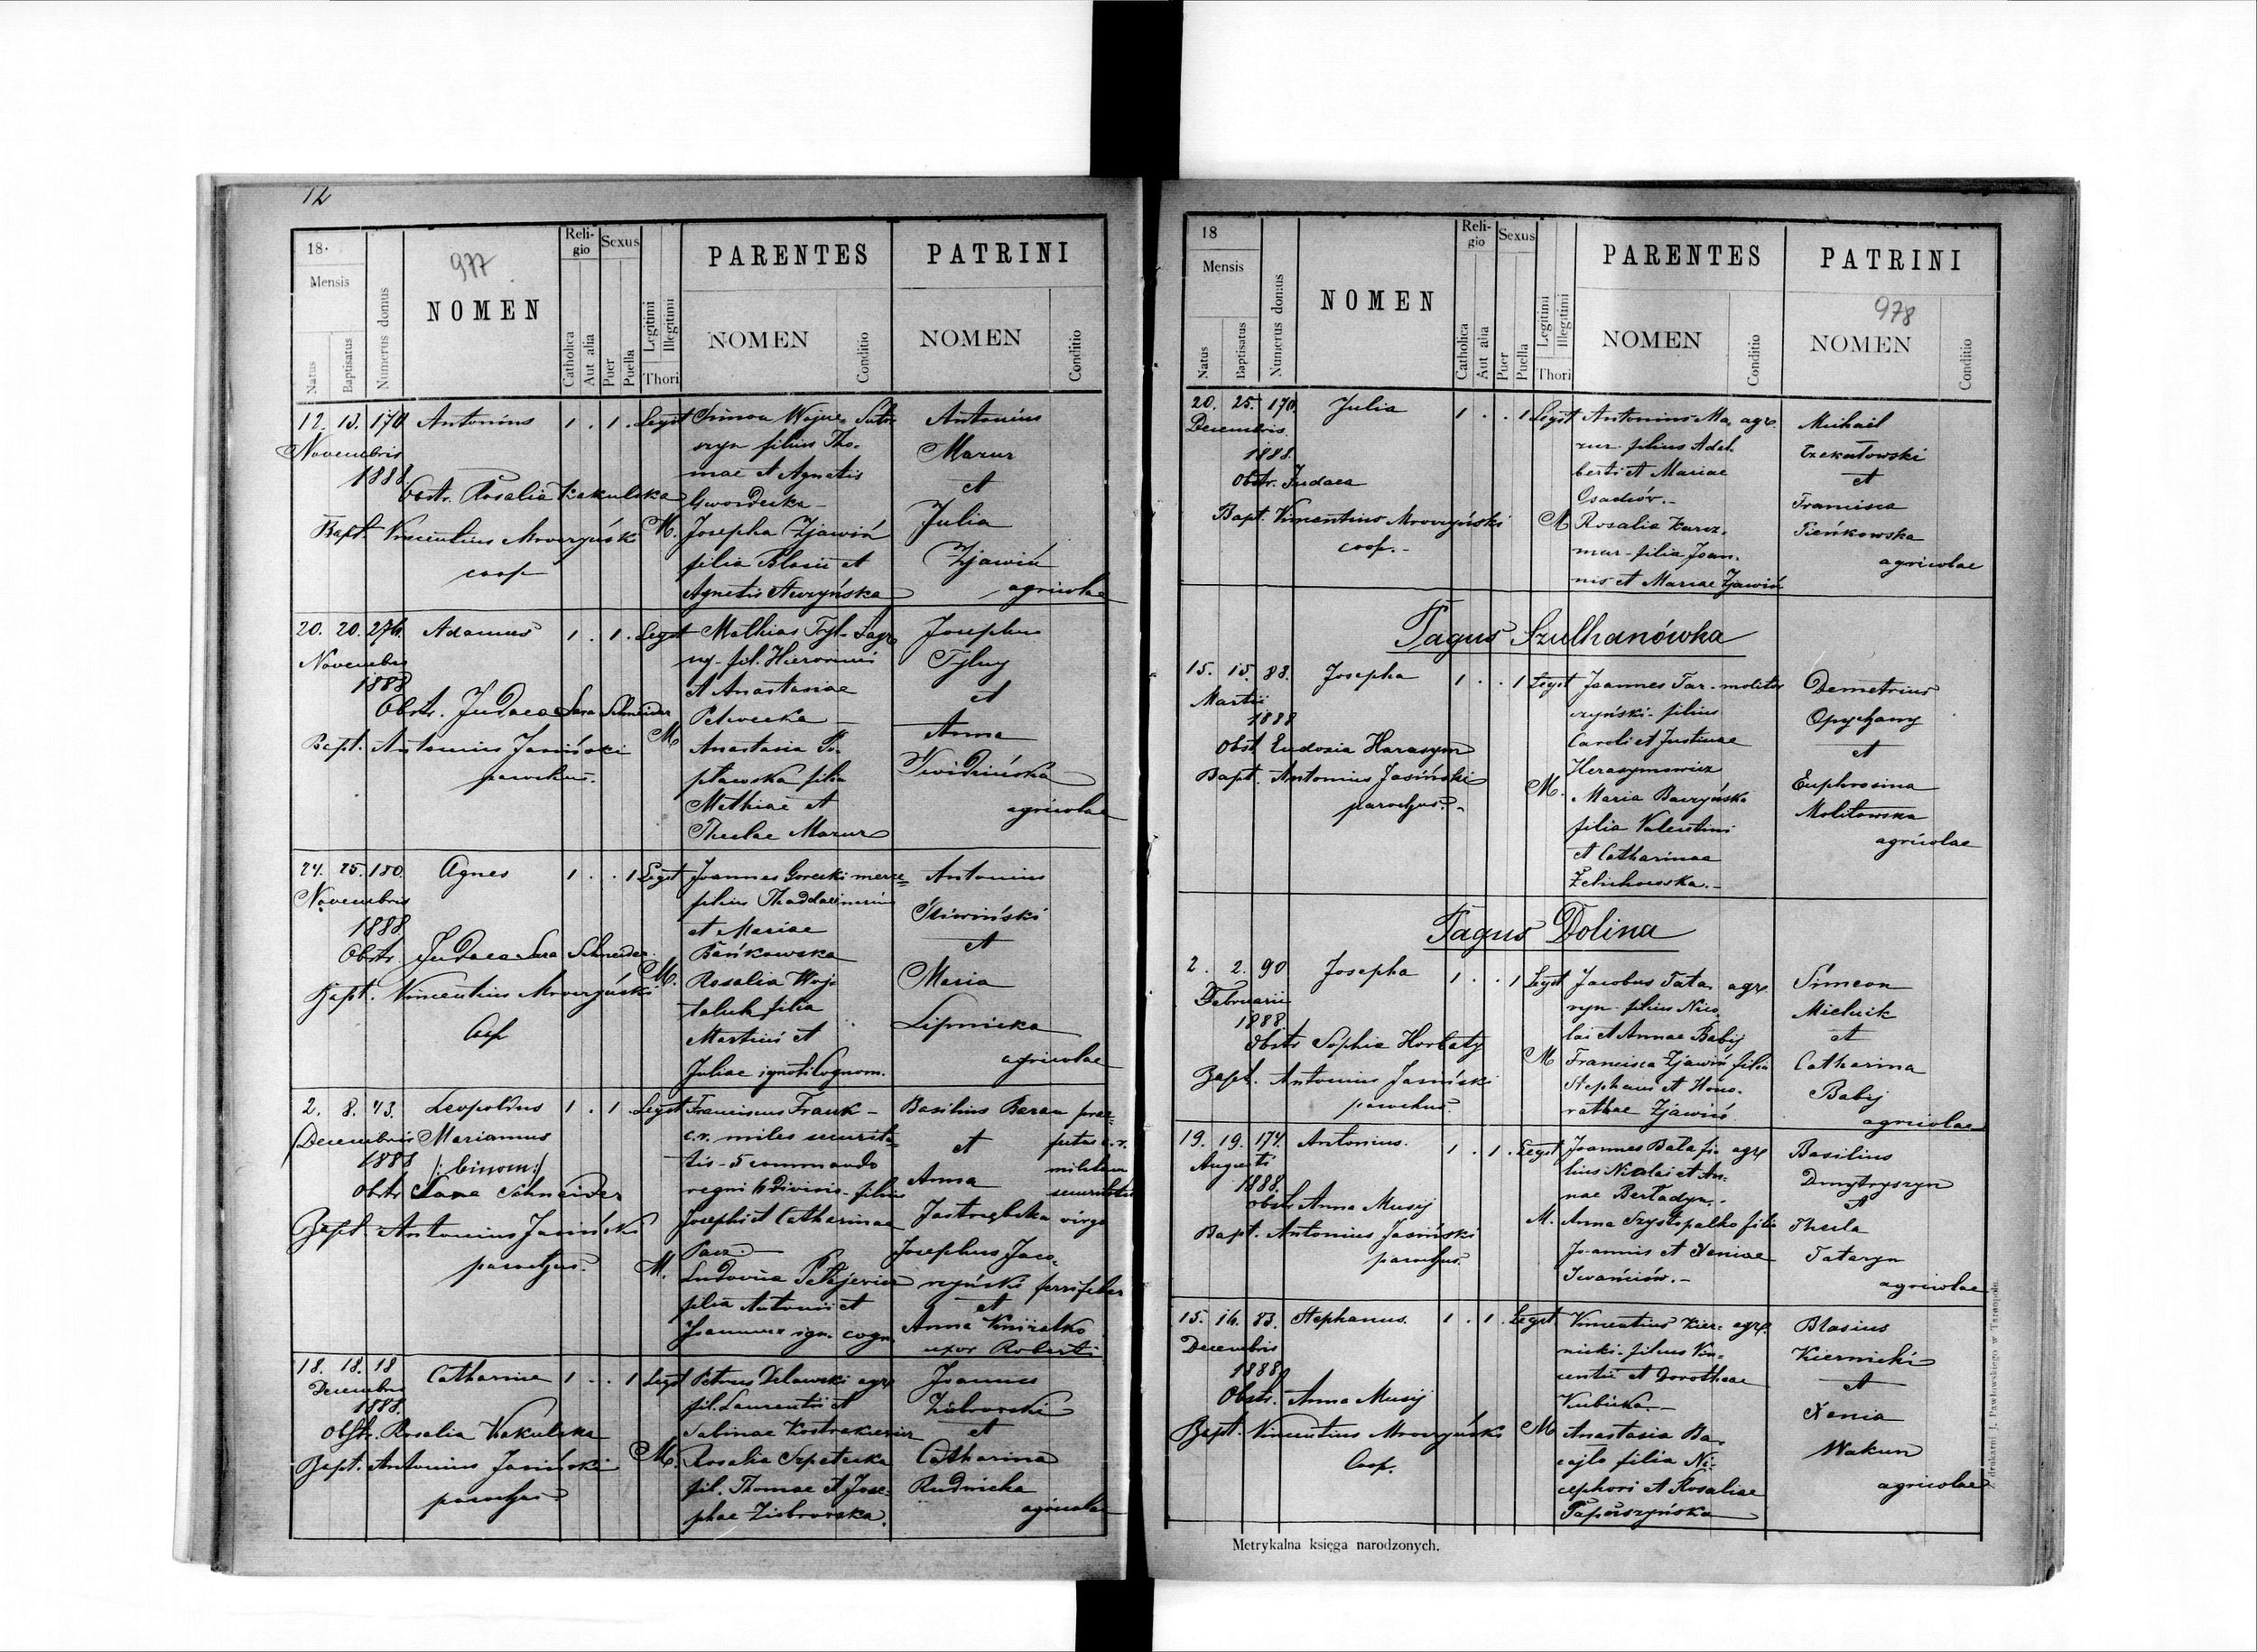 12
18
Mensis
Natus
Baptisatus
Numerus domus
977
NOMEN
Reli-
gio
Catholica
Aut alia
Sexus
Puer
Puella
Legitimi
Illegitimi
Thori
PARENTES
NOMEN
Conditio
PATRINI
NOMEN
Conditio
12. 13. 170. Antonius 1 . 1 . Legit
Novembris
1888
Obstr. Rosalia Kakulska
Bapt. Vincentius Mroczyński
coop
Simon
filius Tho-
mae et Agnetis
Gwozdecka
M. Josepha Zjawiń
filia Blasii et
Agnetis
Antonius
Mazur
et
Julia
Zjawiń
agricolae
20. 20. 276. Adamus 1 . 1 . Legit
Novembris
1888
Obstr. Judaea Sara Schneider
Bapt. Antonius Jasiński
parochus.
Mathias Tyl- agr
ny - fil. Hieronimi
et Anastasiae
M
Anastasia
filia
Mathiae et
Theclae Mazur
Josephus
Tylny
et
Anna
agricolae
24. 25. 180. Agnes 1 . . 1 Legit
Novembris
1888
Obstr. Judaea Sara Schneider
Bapt. Vincentius Mroczyński
Coop
Joannes Gorecki
filius Thaddaei
et Mariae
Bańkowska
M. Rosalia Woj-
taluk filia
Martini et
Juliae ignoti cognom.
Antonius
Śliwiński
et
Maria
Lipnicka
agricolae
2. 8. 43. Leopoldus 1 . 1 . Legit
Decembris Marianus
1888 /: binom :/
Obstr Sara Schneider
Bapt. Antonius Jasiński
parochus.
Franciscus Frank -
c.r. miles securita-
tis - 5 commando
filius
Josephi et Catharinae
M. Ludovica
filia Antonii et
Joannae ign. cogn.
Basilius Baran
et
Anna
Jastrzębska virgo
Josephus
et
Anna
uxor Roberti
18. 18. 18 Catharina 1 . . 1 Legit
Decembris
1888.
Obstr. Rosalia Kakulska
Bapt. Antonius Jasiński
parochus
Petrus agr
fil. Laurentii et
Sabinae
M. Rosalia Szpetecka
fil. Thomae et Jose-
phae Ziobrowska.
Joannes
Ziobrowski
et
Catharina
Rudnicka
agricolae
18
Mensis
Natus
Baptisatus
Numerus domus
NOMEN
Reli-
gio
Catholica
Aut alia
Sexus
Puer
Puella
Legitimi
Illegitimi
Thori
PARENTES
NOMEN
Conditio
PATRINI
978
NOMEN
Conditio
20. 25. 170. Julia 1 . . 1 Legit
Decembris.
1888.
Obstr. Judaea
Bapt. Vincentius Mroczyński
coop. -
Antonius Ma- agr.
zur - filius Adal-
berti et Mariae
Osadców. -
M Rosalia Karcz-
mar - filia Joan-
nis et Mariae Zjawiń
Michaël
et
Francisca
Pieńkowska
agricolae
Pagus Szulhanówka
15. 15. 88. Josepha 1 . . 1 Legit
Martii
1888
Obst. Eudoxia Harasym
Bapt. Antonius Jasiński
parochus. -
Joannes Tar- molitor
czyński - filius
Caroli et Justinae
Herasymowicz
M. Maria Baczyńska
filia Valentini
et Catharinae
Żelichowska. -
Demetrius
Opychany
et
Euphrosina
Molitowska
agricolae
Pagus Dolina
2. 2. 90 Josepha 1 . . 1 Legit
Februarii
1888
Obstr Sophia Horbaty
Bapt. Antonius Jasiński
parochus.
Jacobus Tata- agr.
ryn - filius Nico-
lai et Annae Babij
M Francisca Zjawiń filia
Stephani et Hono-
rathae Zjawiń
Simeon
Mielnik
et
Catharina
Babij
agricolae
19. 19. 174. Antonius. 1 . 1 . Legit
Augusti
1888.
Obstr Anna Musij
Bapt. Antonius Jasiński
parochus.
Joannes Bala fi- agr
lius Nicolai et An-
nae Berładyn. -
M. Anna filia
Joannis et Xeniae
Iwańciów. -
Basilius
Dmytryszyn
et
Thecla
Tataryn
agricolae
15. 16. 83. Stephanus. 1 . 1 . Legit
Decembris
1888
Obstr. Anna Musij
Bapt. Vincentius Mroczyński
Coop.
Vincentius Kier- agr.
nicki - filius Vin-
centii et Dorotheae
Kubicka. -
M Anastasia Ba-
cajło filia Ni-
cephori et Rosaliae
Blasius
Kiernicki
et
Xenia
Wakun
agricolae
Metrykalna księga narodzonych.
Z drukarni J. Pawłowskiego w Tarnopolu.